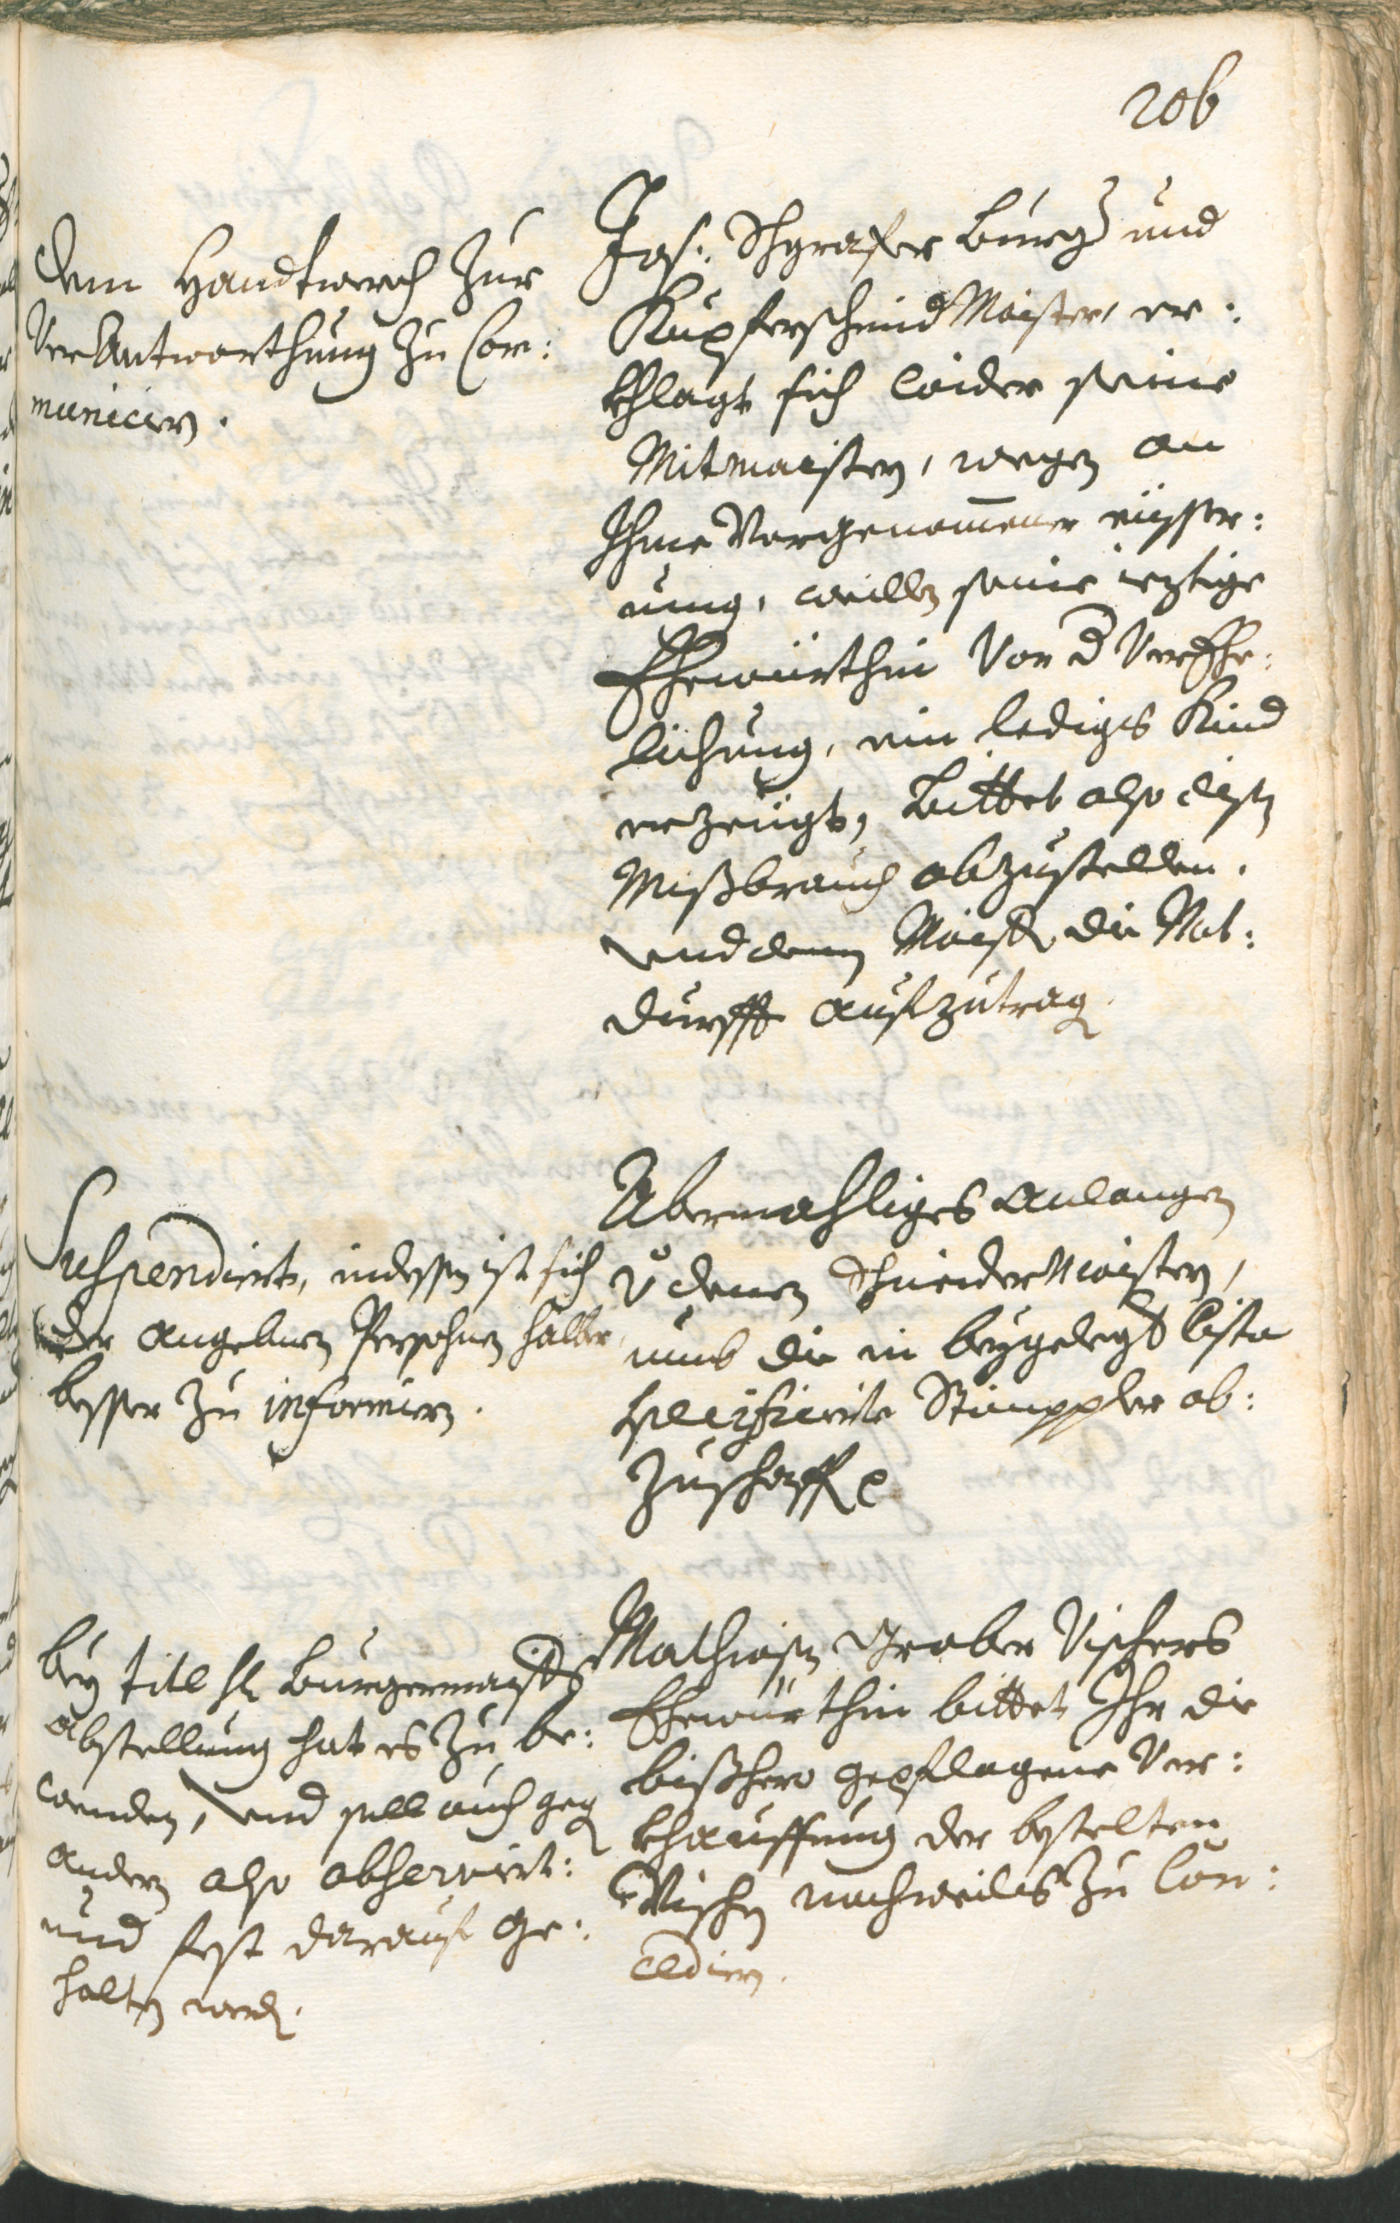 206
Dem Handtwerch zur
VerAntworthung zu Com:
municiern.
Jos: Schgraffer Burg. und
Kupferschmid Maister, er:
khlagt sich wider seine
Mitmaistern, wegen an
Ihme Vorgenomener
weillen seine ieztige
Ehewürthin Vor d VerEhe:
lichung, ein lediges Kind
erzeügt, Bittet also disen
Mißbrauch abzustellen.
und denen Maistern die Not:
durfft aufzutragen.
Suspendirt, indessen ist sich
der angebnen Persohnen halber
besser zu informiern.
Abermahliges anlangen
v denen Schneider Maistern,
umb die in beygelegt lista
specificirte Stimppler ab:
zuschaffen
bey titl H Burgermaisters
abstellung hat es zu be:
wenden, und soll auch gegen
andern also observirt:
und fest darauf ge:
halten werden.
Mathiasen Graber Vischers
Ehewürthin bittet Ihr die
bißhero gepflogene Ver:
khauffung der bestelten
Vischen nachweilss zu Con:
cediern.